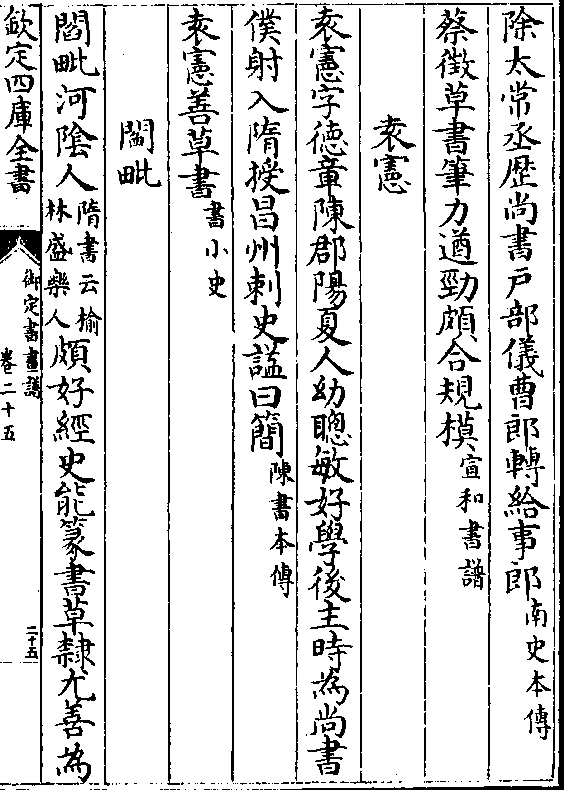 除太常丞歴尚書戸部儀曹郎轉給事郎南史本傳
蔡徴草書筆力遒勁頗合規模宣和書譜
袁憲
袁憲字徳章陳郡陽夏人幼聰敏好學後主時為尚書
僕射入隋授昌州刺史謚曰簡陳書本傳
袁憲善草書書小史
閻毗
閻毗河隂人隋書云榆林盛樂人頗好經史能篆書草隸尤善為
欽定四庫全書
御定書畫譜
卷二十五
二十五